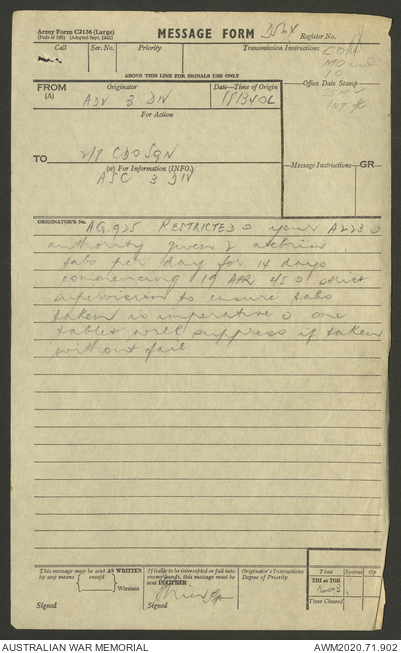 Army Form C2136 (Large)
(Pads of 100) (Adapted Sept. 1942)
MESSAGE FORM
Register No.
Call
Ser. No.
Priority
Transmission Instructions
ABOVE THIS LINE FOR SIGNALS USE ONLY
FROM
(A)
Originator
ADV 3 DIV
Date—Time of Origin
Office Date Stamp
For Action
TO
2/8 CDO SQN
(w) For Information (INFO.)
ASC 3 DIV
Message Instructions
GR
ORIGINATOR'S No.
AG.925 RESTRICTED o your A223 o
authority given 2 atebrin
tabs per day for 14 days
commencing 19 APR 45 o strict
supervision to ensure tabs
taken is imperative o one
tablet will suppress if taken
without fail
This message may be sent AS WRITTEN
by any means
except
Wireless
Signed
If liable to be intercepted or fall into
enemy hands, this message must be
sent IN CIPHER
Signed
Originator's Instructions
Degree of Priority
Time
System
Op
THI or TOR
Time Cleared
AUSTRALIAN WAR MEMORIAL
AWM2020.71.902